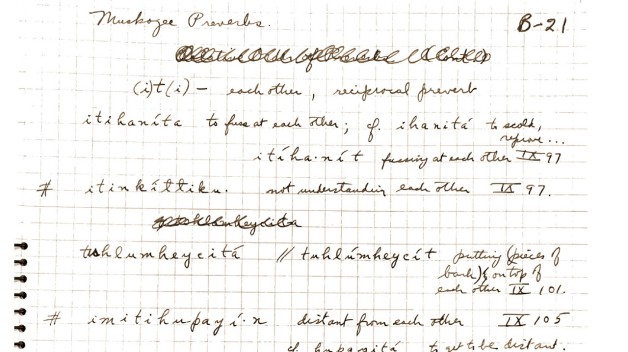 Muskogee Preverbs.
B-21
(i)t(i) - each other, reciprocal preverb
itihaníta to fuss at each other; cf. ihanitá to scold,
reprove...
itíha·nít fussing at each other IX 97
# itinkíłłiku. not understanding each other IX 97.
tuhlumheycitá // tuhlúmheycít putting (pieces of
bark) on top of
each other IX 101.
# imitihupayí·n distant from each other IX 105
cf. hupayitá to get to be distant.